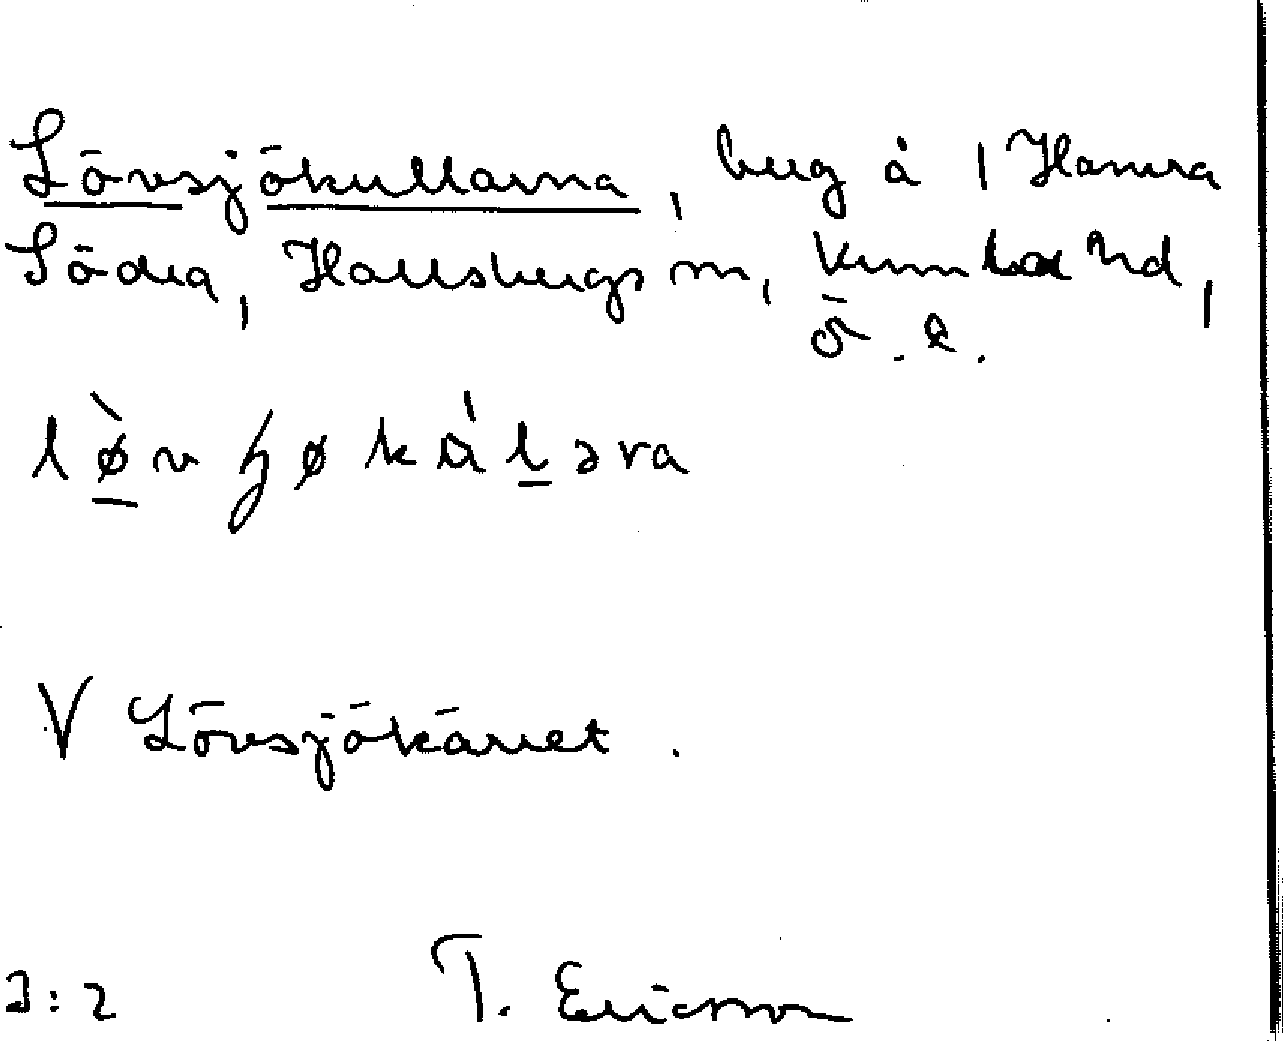 Lövsjökullarna, berg å 1 Hamra
Södra, Hallsbergs sn, Kumla hd,
ö. e.
lø̀vʒøkålǝra
V Lövsjökärret.
J:2 T. Ericsson